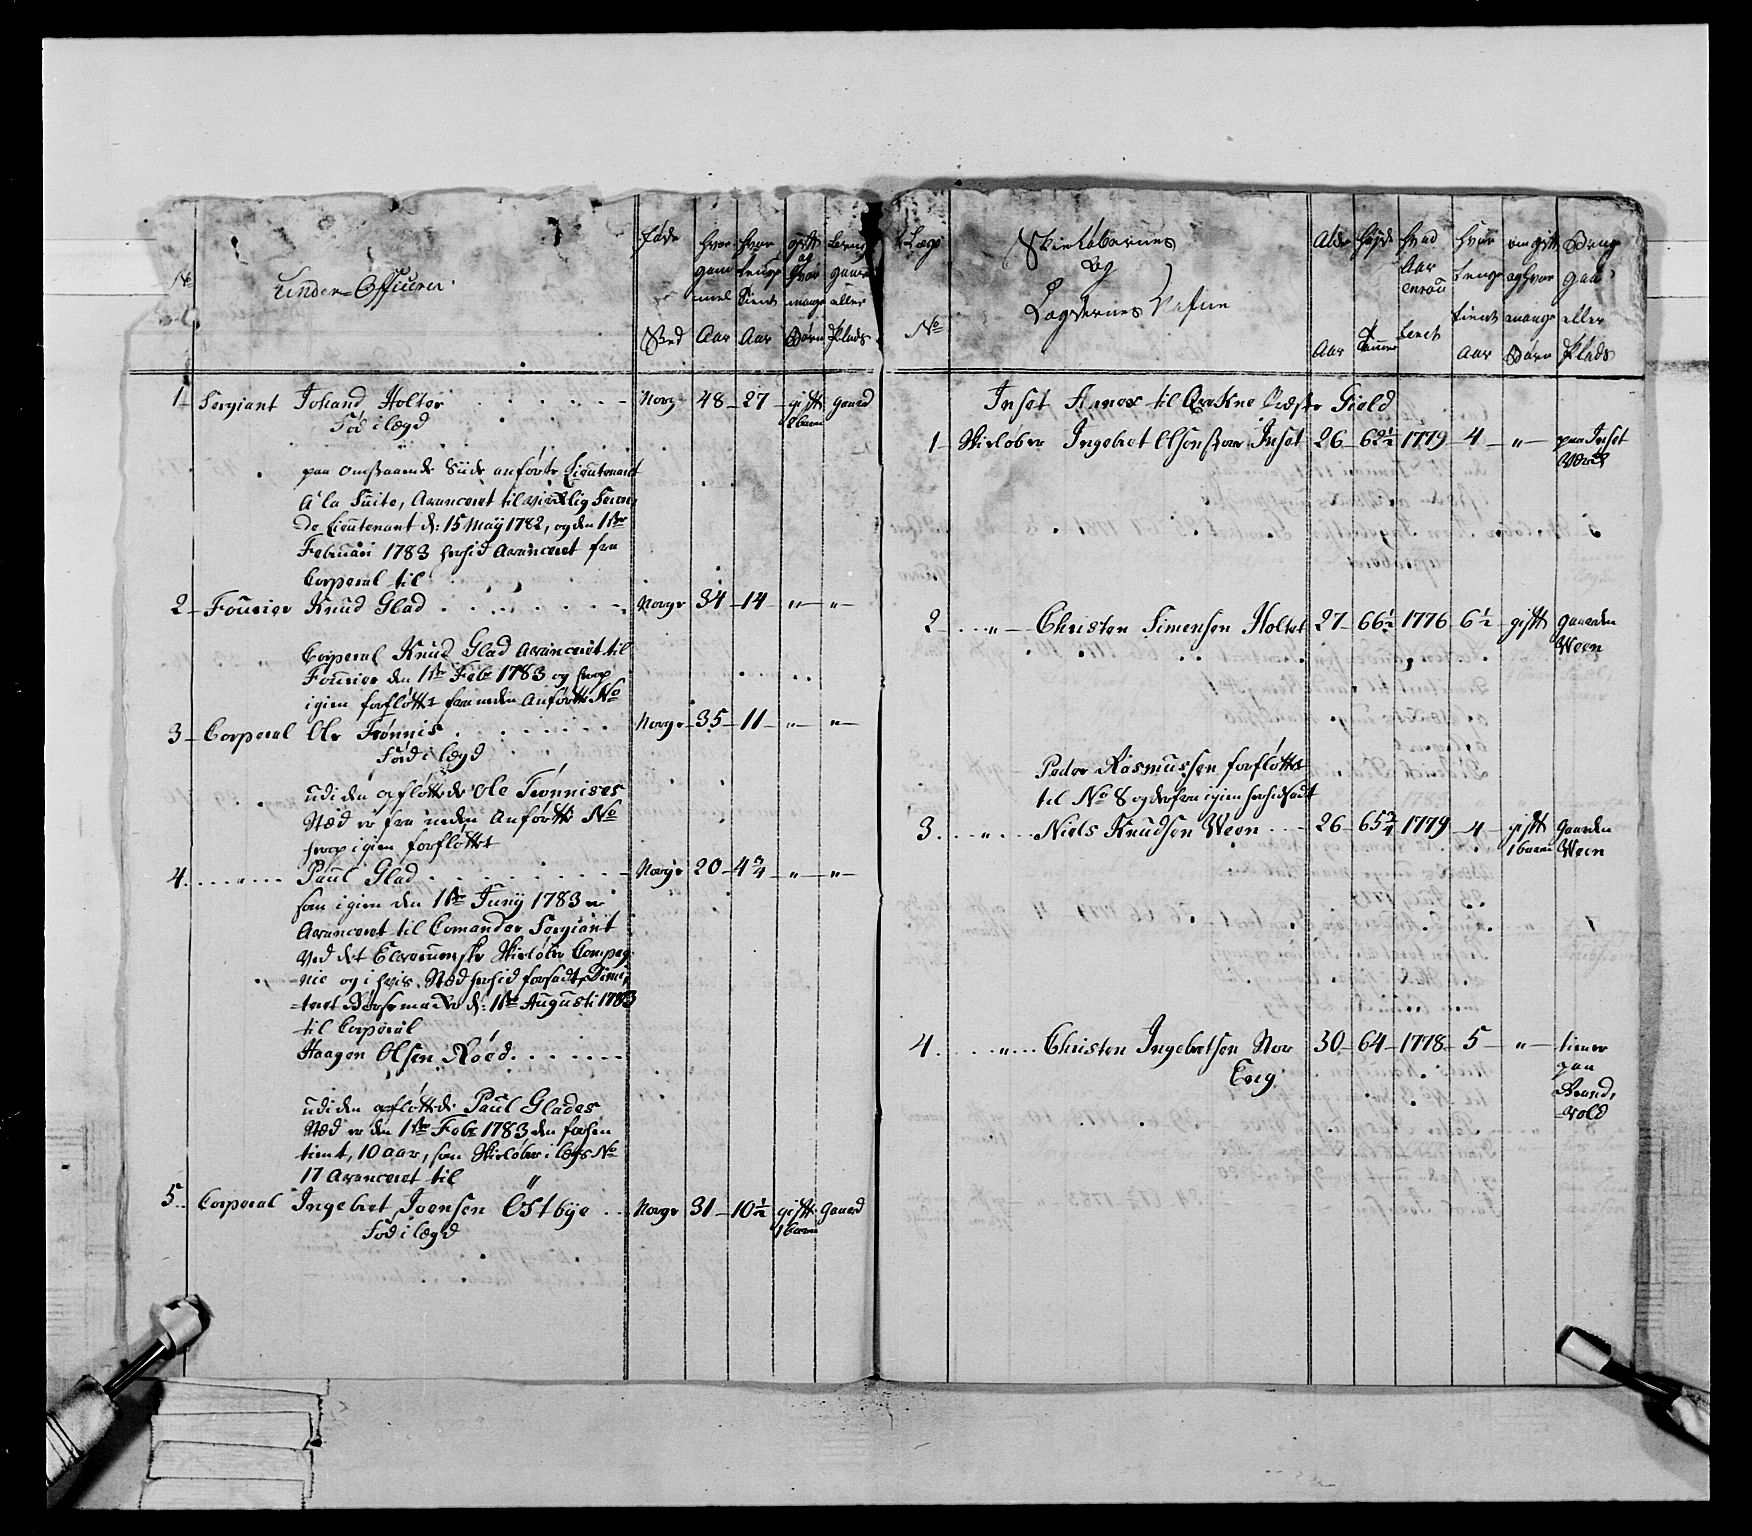 No
Under-Officerer
føde
Sted
hvor
gam
mel
Aar
hvor
lenge
tient
Aar
gift
og
hvor
mange
Børn
gaard
eller
Plads
1 Sergiant Johand Holter Norge 48 27 gift gaard
Fød i lægd
paa omstaaende Side anførte Lieutenant
A'la Suite, Avanceret til virkelig Secon-
de Lieutenant d: 15 May 1782, og den 1ste
Februari 1783 herhid Avanceret fra
Corporal til
2 Fourier Knud Glad Norge 34 14 " "
Corporal Knud Glad Avanceret til
Fourier den 1ste Febr 1783 og herop
igien forfløttet fra neden Anførte No
3 Corporal Ole Trønnis Norge 35 11 " "
Fød i lægd
udi den afløttede Ole Trønnises
Stæd er fra neden Anførtte No
herop igien forfløttet
4 " Paul Glad Norge 20 4 3/4 " "
som igien den 1ste Juny 1783 er
Avanceret til Comander Sergiant
ved det Elverumske Skieløber Compag-
nie og i hvis Stæd herhid forsadt Dimit-
teret d: 1ste Augusti 1783
til Corporal
Haagen Olsen Roed
udi den afløttede Paul Glades
Stæd er den 1ste Febr 1783 den forhen
tient, 10 aar, som Skieløber i legs No
17 Avanceret til "
5 Corporal Ingebret Joensen Østbye Norge 31 10 1/2 gift gaard
1 barn
Fød i lægd
Lægs
No
Skieløbernes
Og
Lægdernes Nafne
Alder
Aar
Højde
Tommer
hvad
Aar
enroll
leret
hvor
lenge
tient
Aar
om gift
og hvor
mange
Børn
Brug
gaar
eller
Plads
Inset Annex til Qvikne Præste Gield
1 Skieløber Ingebret Olsen Stor Inset 26 62 1/2 1779 4 " paa Inset
Værck
2 " Christen Simensen Holtet 27 66 1/2 1776 6 1/2 gift gaarden
Ween
Peder Rasmussen forfløttet
til No 8 og derfra igien herhidsadt
3 " Niels Knudsen Ween 26 65 3/4 1779 4 gift gaarden
1 barn Ween
4 " Christen Ingebretsen Nor 30 64 1778 5 " tiener
Eng paa
Brand-
vold